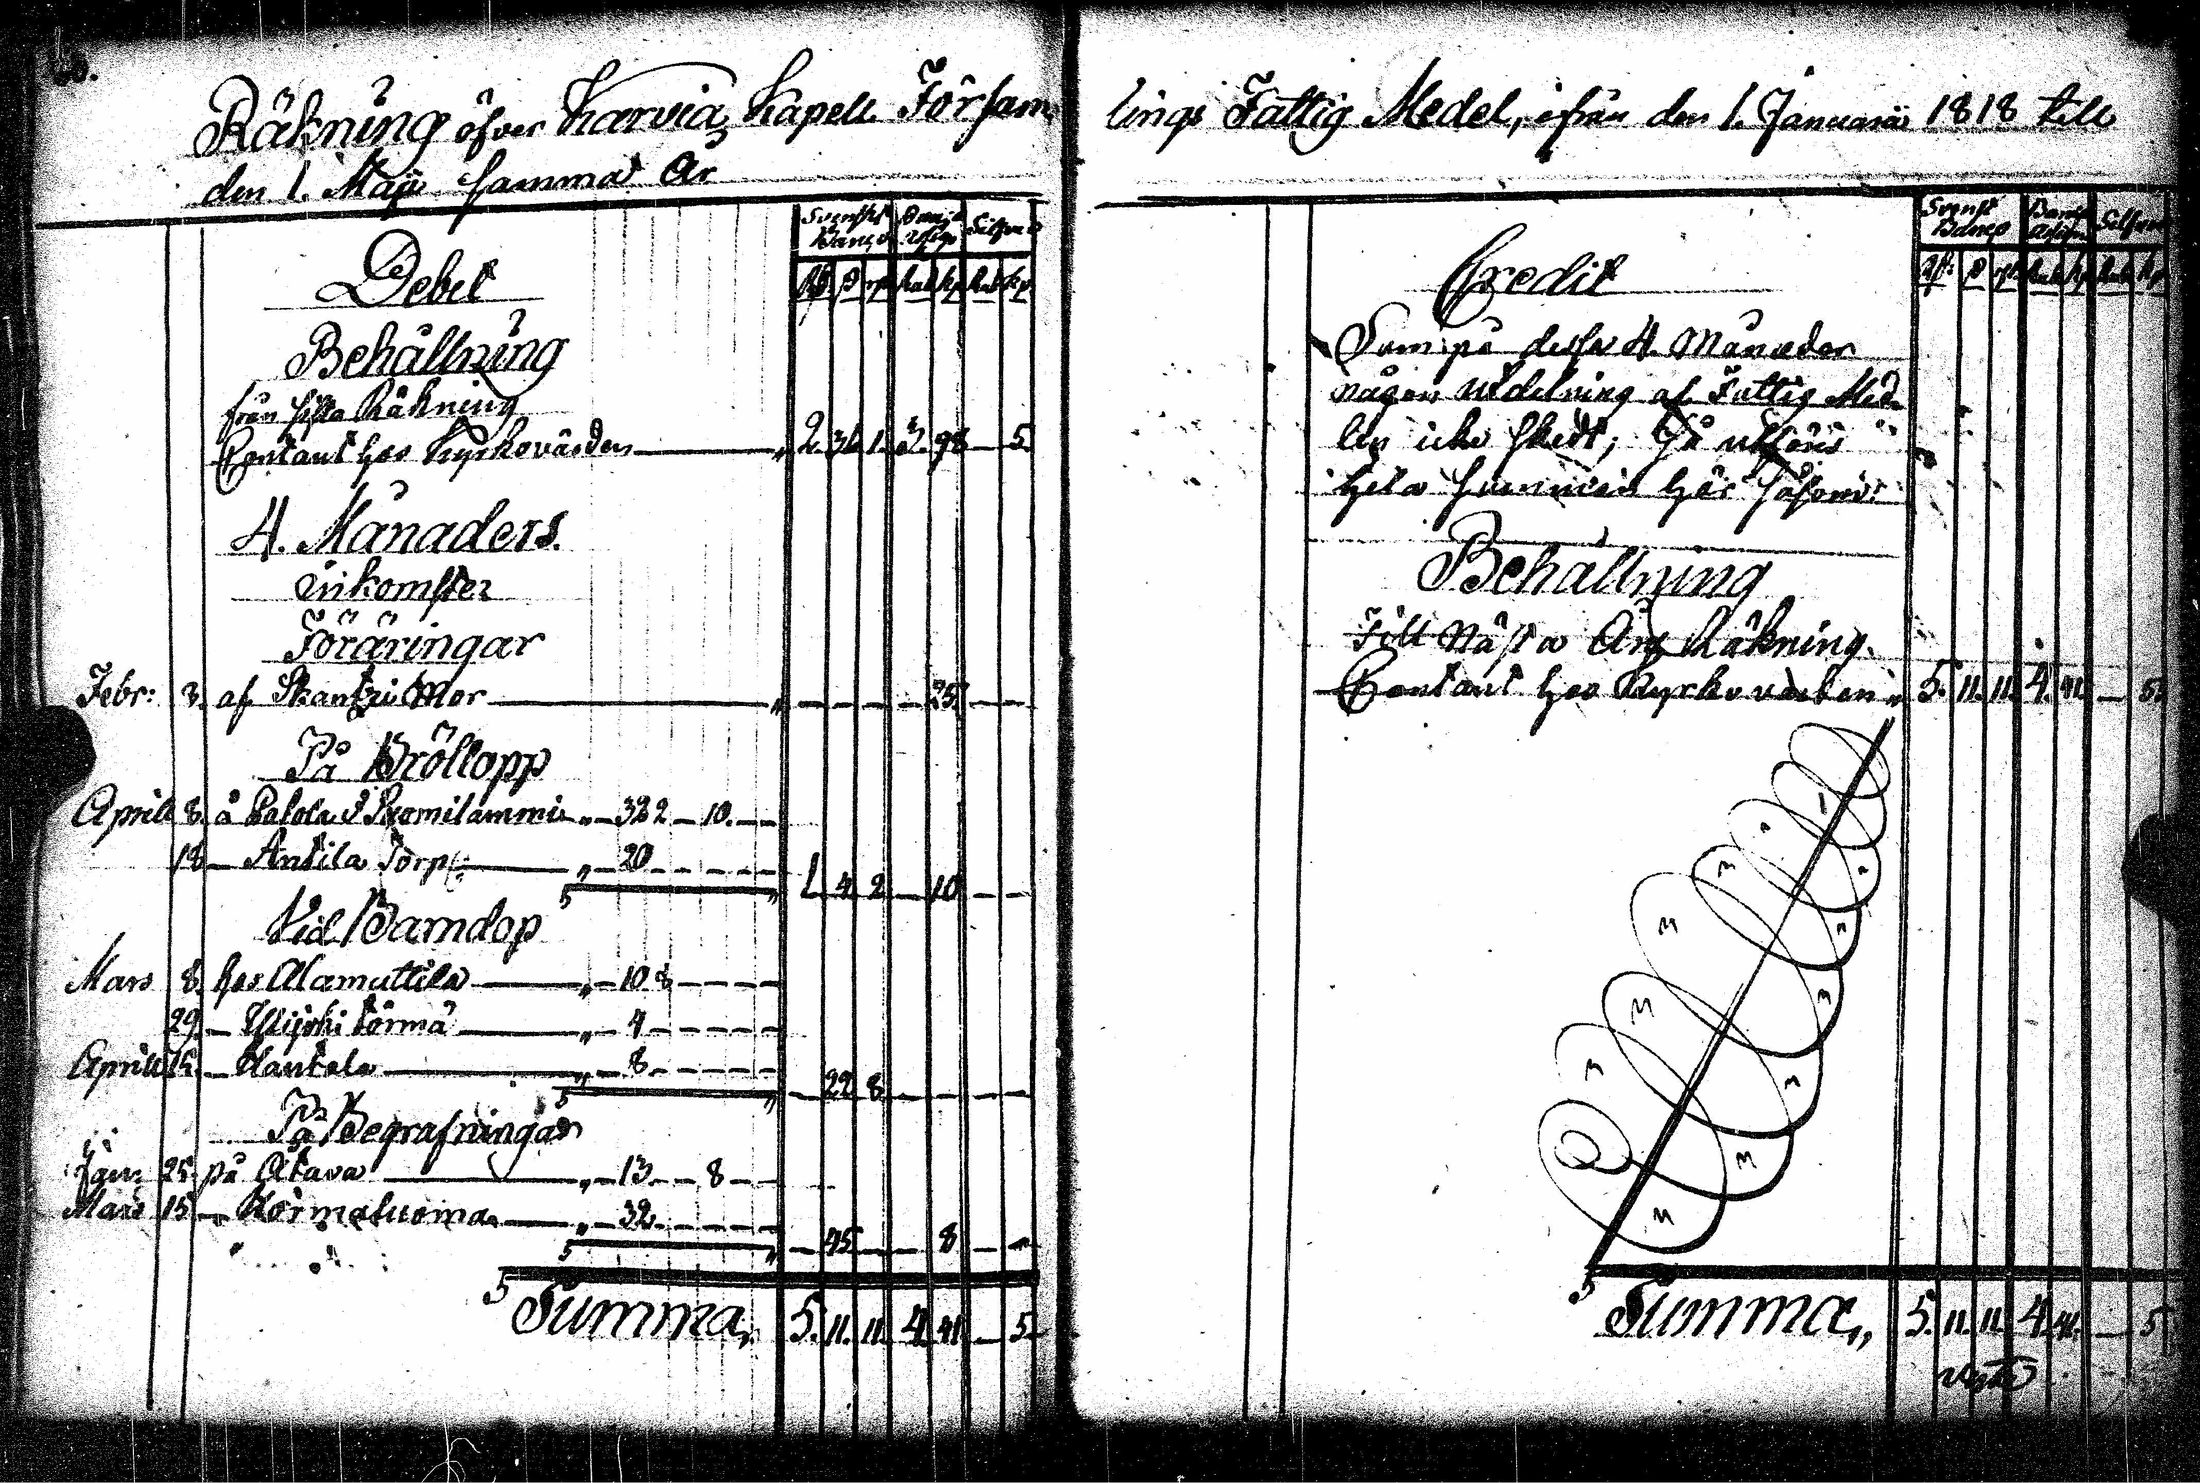 Räkning öfver Karvia Kapell Försam
den 1. Maji samma År
Svenskt Banco Banco Assign Silfver
Rd ß rst Rub Kp Rub Kp
Debet
Behållning
från sista Räkning
Contant hos Kyrkovärden " 2. 36 1. 3. 98 — 5.
4. Månaders.
inkomster
Föräringar
Febr: 3. af Skantzi Mor " — — — — 25. — —
På Bröllopp
Aprill 8. å " 32 2 — 10. —
18 — Antila Torp " 20
S " 1 4 2 — 10 — —
Vid Barndop
Mars 8. hos Alamuttila " 10 8
29. — törmä " 4
Aprill 15. — " 8
S " — 22 8 — — — —
På Begrafningar
Jan: 25. på Atava " 13 — 8 —
Mars 15 — Kormaluoma " 32
S " — 45 — — 8 — —
S Summa, 5. 11. 11. 4. 41. — 5.
lings Fattig Medel, ifrån den 1. Januarii 1818 till
Svenst Banco Banco Assign Silfver
Rd: ß rst Rub Kp Rub Kp
Credit
Som på dessa 4. Månader
någon utdelning af Fattig Med
len icke skedt; Så utföres
hela summan här såsom:
Behållning
Till Nästa Års Räkning.
Contant hos Kyrkovärden " 5. 11. 11. 4. 41. — 5.
S Summa,, 5. 11. 11. 4. 41. — 5